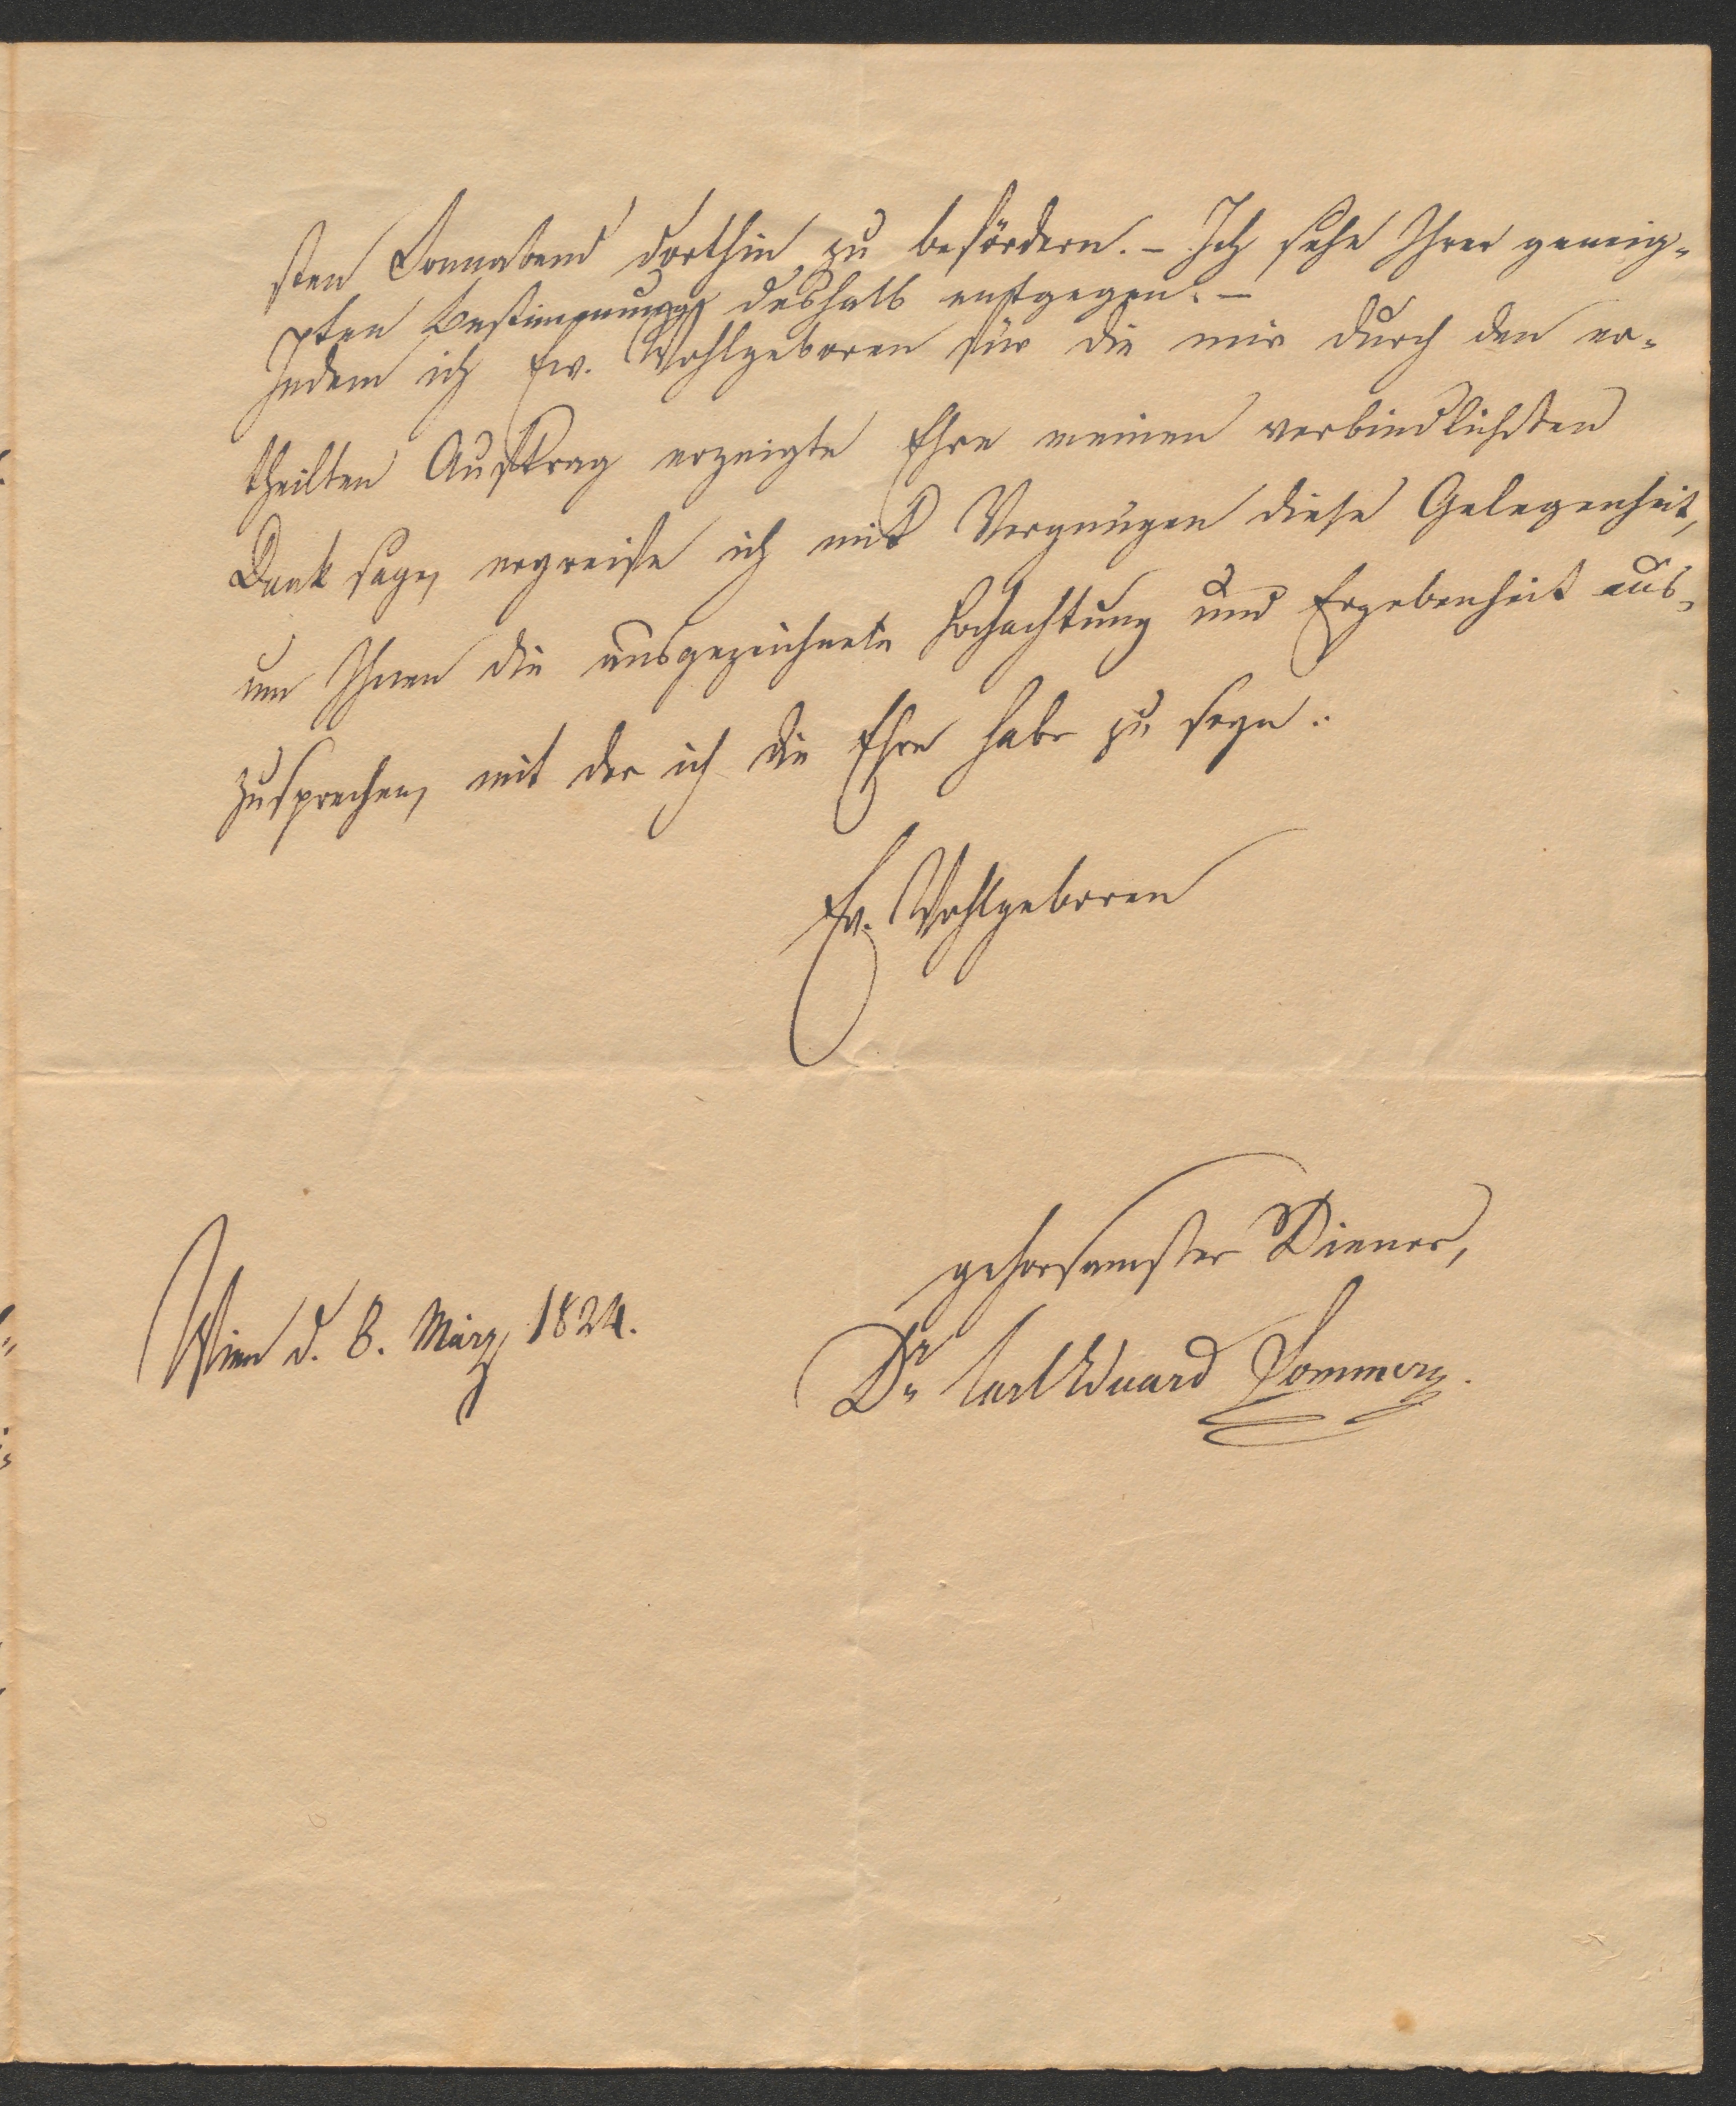 sten Sonnabend dorthin zu befördern. – Ich sehe Ihrer geneig-
testen Bestimmung deshalb entgegen. –
Indem ich Ew. Wohlgeboren für die mir durch den er-
theilten Auftrag erzeigte Ehre meinen verbindlichsten
Dank sage, ergreife ich mit Vergnügen diese Gelegenheit,
um Ihnen die ausgezeichnete Hochachtung und Ergebenheit aus-
zusprechen, mit der ich die Ehre habe zu seyn:
Ew. Wohlgeboren
gehorsamster Diener,
Wien d. 8. März 1824.
Dr. Carl Eduard